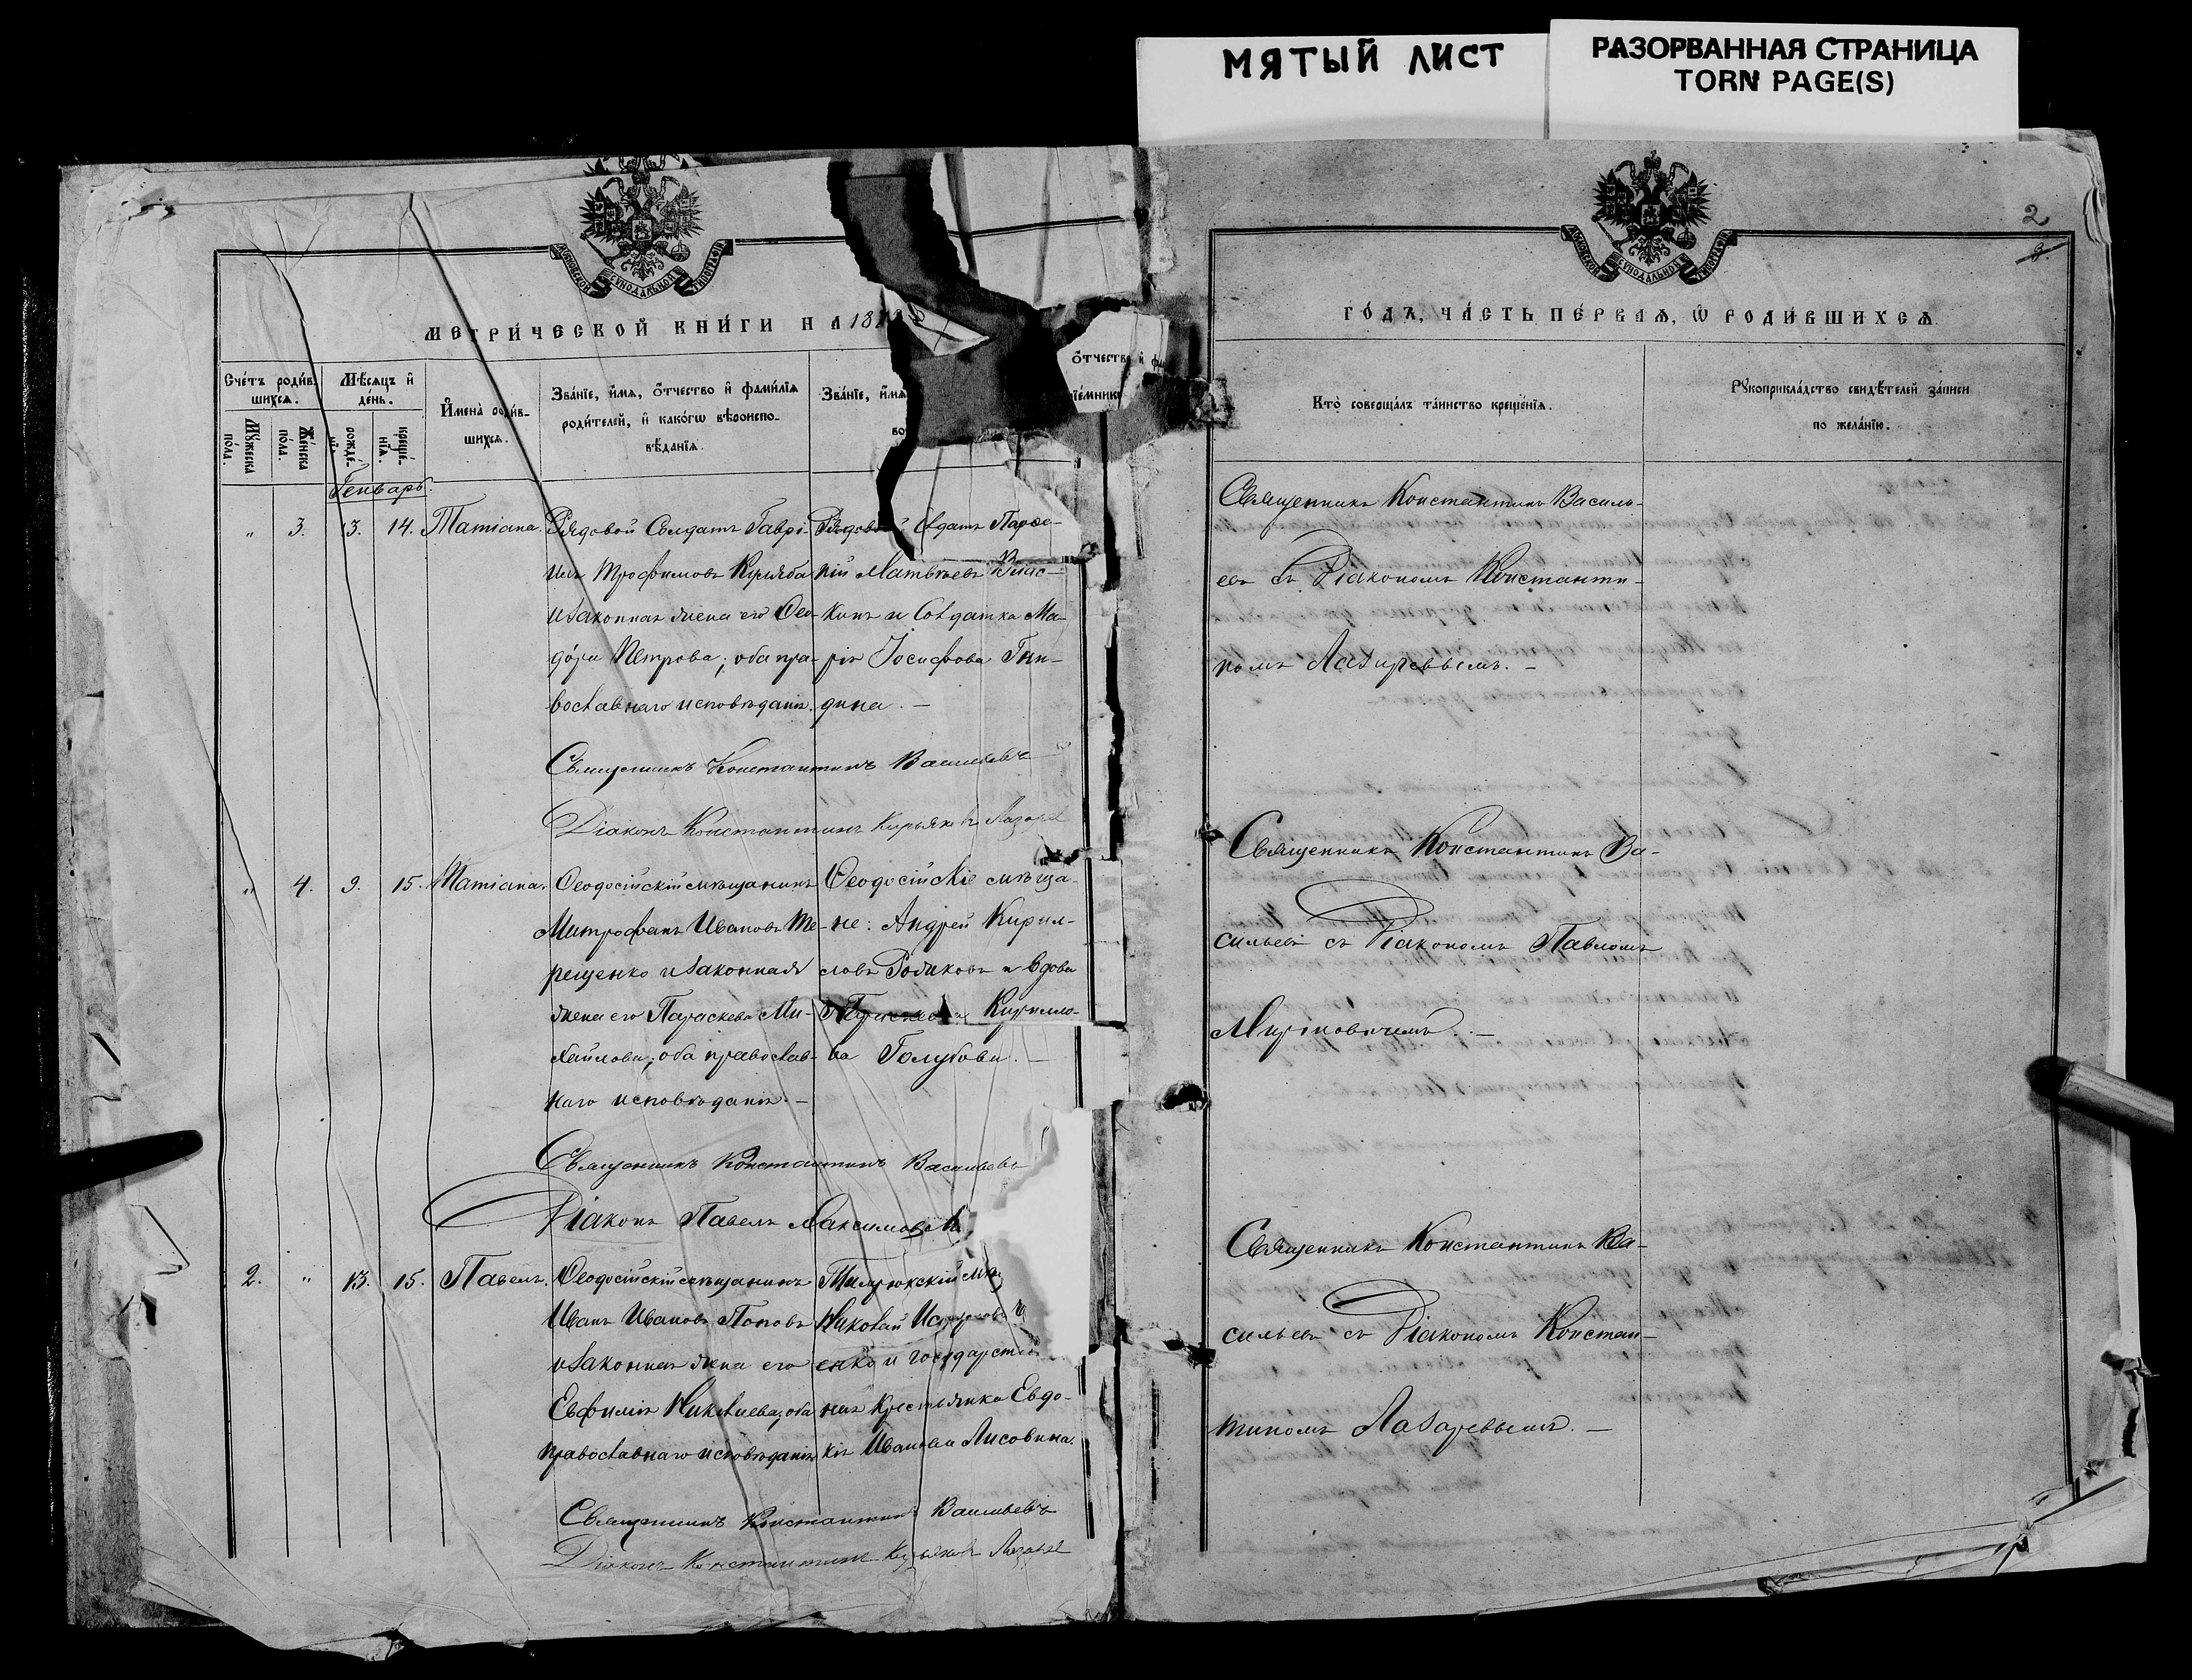 МЯТЫЙ ЛИСТ
РАЗОРВАННАЯ СТРАНИЦА
TORN PAGE(S)
МОСКОВСКОЙ СѴНОДАЛЬНОЙ ТИПОГРАФІИ
МЕТРИ́ЧЕСКОЙ КНИ́ГИ НА 18
Сче́тъ роди́в-
шихсѧ.
Мѣ́сѧцъ и҆
де́нь.
И҆мена̀ роди́в-
шихсѧ.
Зва́нїе, и҆́мѧ, ѻ҆́тчество и҆ фами́лїѧ
роди́телей, и҆ како́гѡ вѣроиспо-
вѣ́данїѧ.
Зва́нїе, и҆́мѧ
ѻ҆́тчество и҆
Мꙋ́жеска
по́ла.
Же́нска
по́ла.
рожде́-
нїѧ.
креще́-
нїѧ.
Генварь.
" 3. 13. 14. Татіана. Рядовой Солдатъ Гаврі-
илъ Трофимовъ
и законная жена его Ѳео-
дора Петрова; оба пра-
вославнаго исповѣданія.
Рядовой Солдатъ Парѳе-
ній Матвѣевъ
кинъ и Солдатка Ма-
рія Іосифова
дина. —
Священникъ Константинъ Васильевъ
Діаконъ Константинъ Кирьяковъ
" 4. 9. 15. Татіана. Ѳеодосійскій мѣщанинъ
Митрофанъ Ивановъ Те-
рещенко и законная
жена его Параскева Ми-
хайлова; оба православ-
наго исповѣданія. —
Ѳеодосійскіе мѣща-
не: Андрей Кирил-
ловъ и вдова
Параскева Кирилло-
ва Голубова. —
Священникъ Константинъ Васильевъ
Діаконъ Павелъ Максимовъ
2. " 13. 15. Павелъ. Ѳеодосійскій мѣщанинъ
Иванъ Ивановъ Поповъ
и законная жена его
Евфимія Николаева; оба
православнаго исповѣданія
Темрюкскій мѣ
Николай
енко и государствен
ная крестьянка Евдо-
кія Иванова Лисовина.
Священникъ Константинъ Васильевъ
Діаконъ Константинъ Кирьяковъ
2
МОСКОВСКОЙ СѴНОДАЛЬНОЙ ТИПОГРАФІИ
ГО́ДЪ, ЧА́СТЬ ПЕ́РВАѦ, Ѡ҆ РОДИ́ВШИХСѦ
Кто̀ соверша́лъ та́инство креще́нїѧ.
Рꙋкоприкла́дство свидѣ́телей за́писи
по жела́нїю.
Священникъ Константинъ Василь-
евъ съ Діакономъ Константи-
номъ Лазаревымъ. —
Священникъ Константинъ Ва-
сильевъ съ Діакономъ Павломъ
Священникъ Константинъ Ва-
сильевъ съ Діакономъ Констан-
тиномъ Лазаревымъ. —